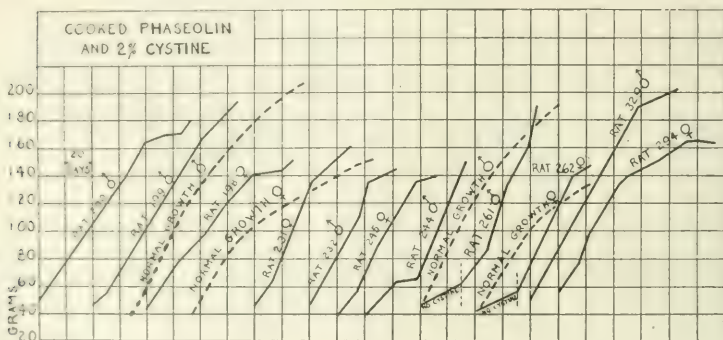 COOKED PHASEOLIN
AND 2% CYSTINE
200
180
160
140
120
100
80
60
40
20
GRAMS
20
DAYS
RAT ♂
RAT 199 ♂
NORMAL GROWTH ♂
RAT 198 ♀
NORMAL GROWTH ♀
RAT 231 ♀
RAT 232 ♂
RAT 245 ♀
RAT 244 ♂
NORMAL GROWTH ♂
RAT 261 ♂
RAT 262 ♀
NORMAL GROWTH ♀
RAT 329 ♂
RAT 294 ♀
NO CYSTINE
NO CYSTINE